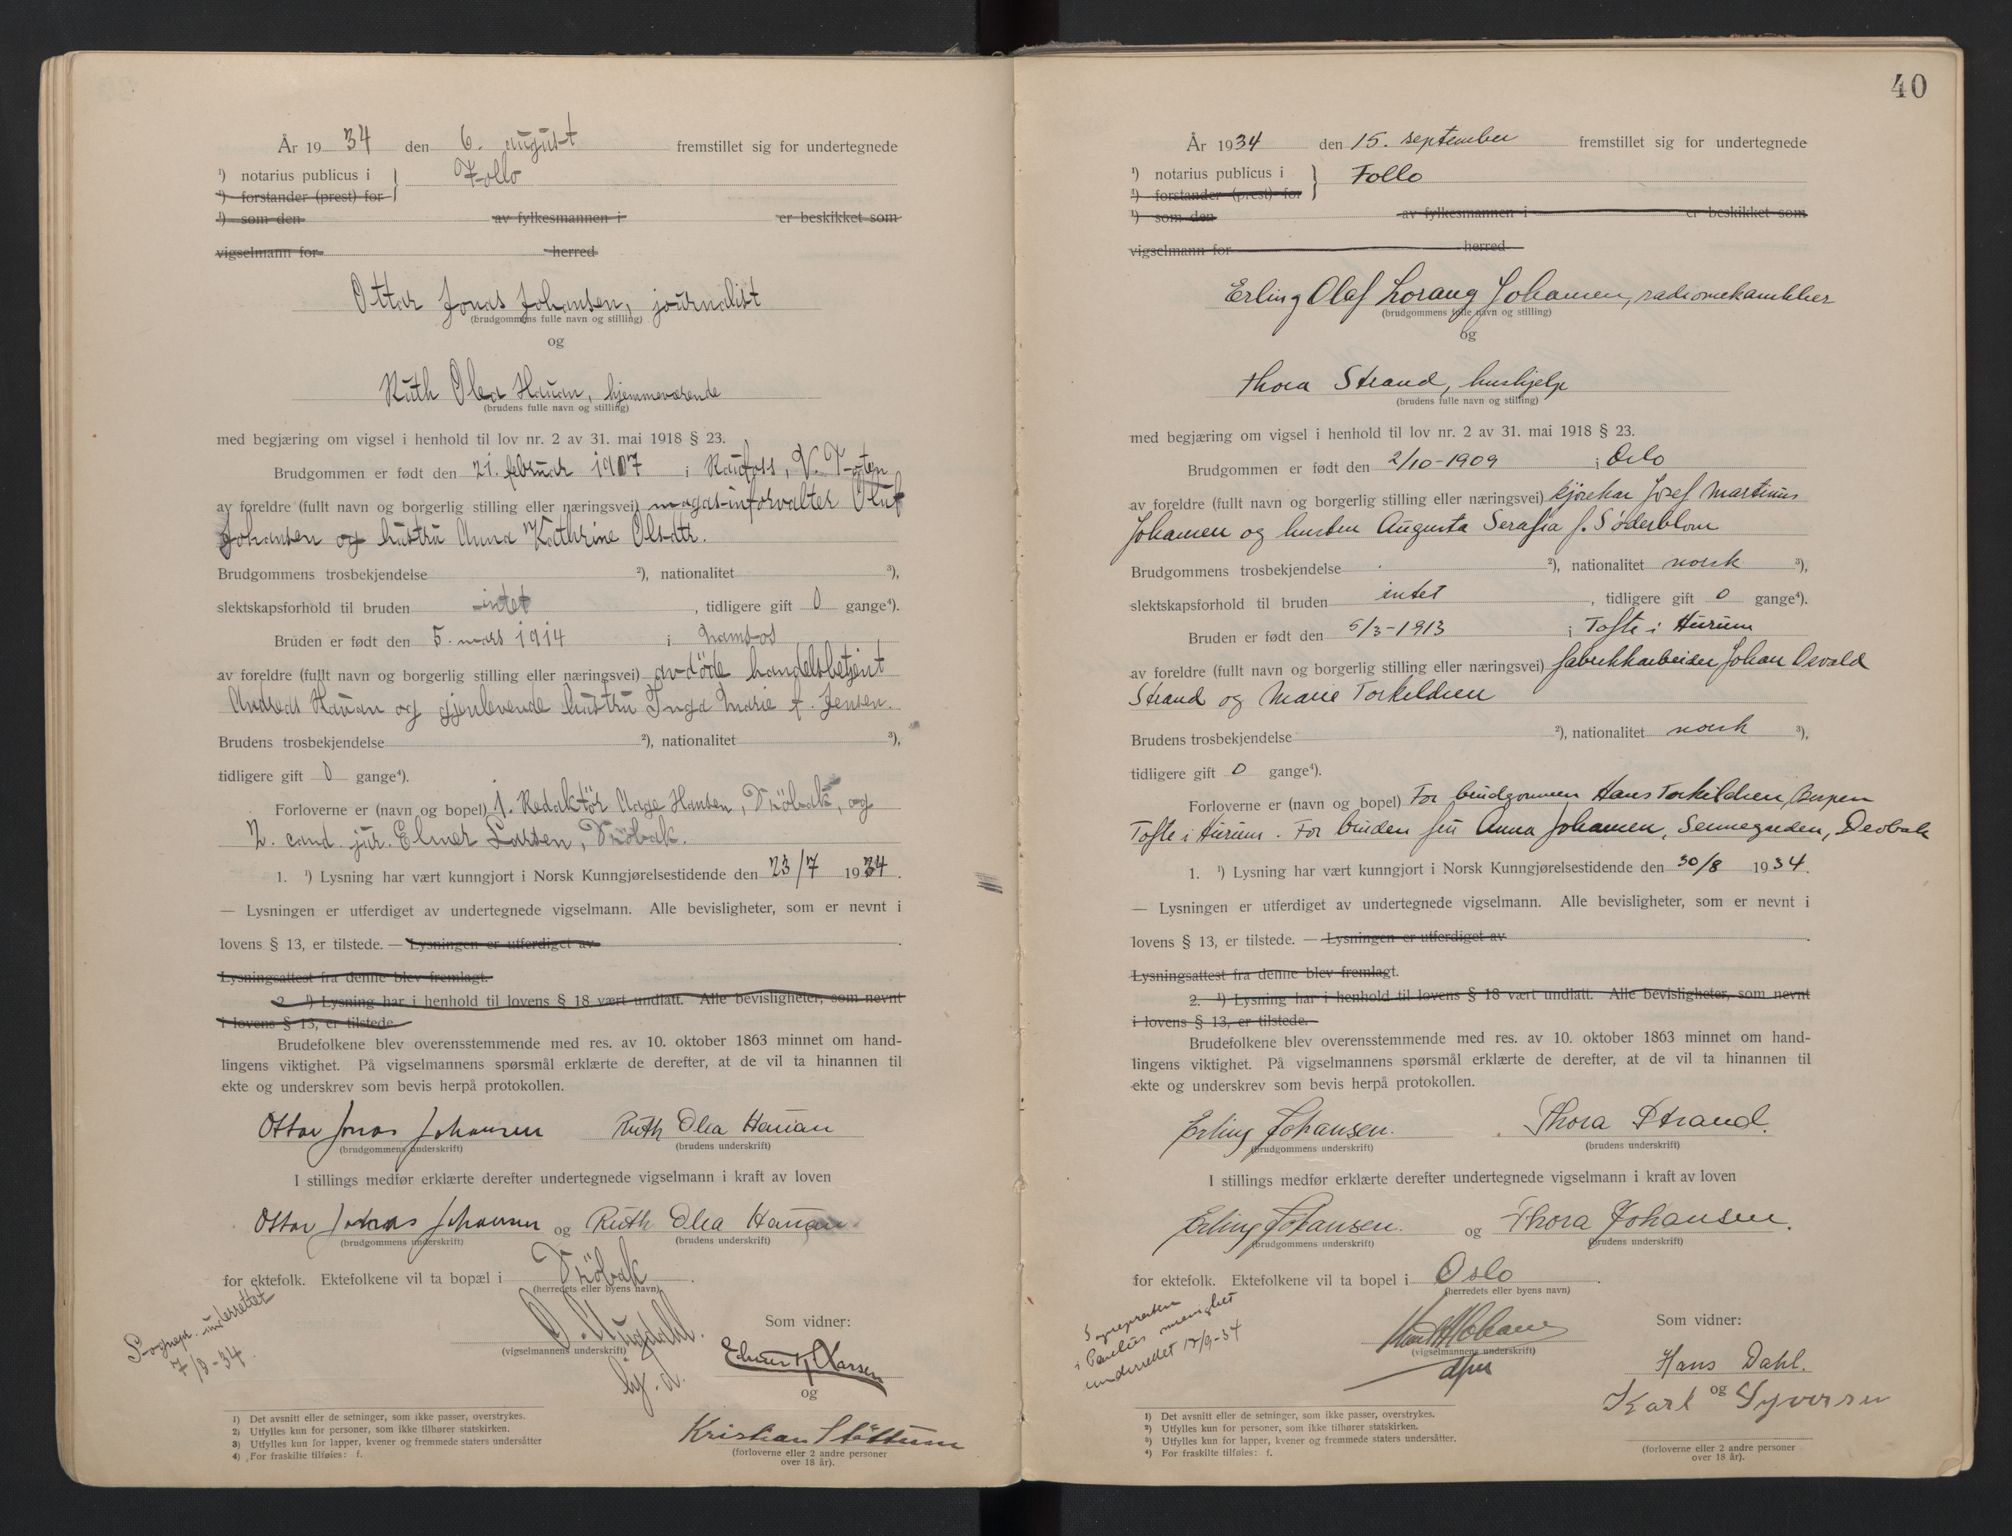 År 1934 den 6. august fremstillet sig for undertegnede
¹) notarius publicus i } Follo
¹) forstander (prest) for
¹) som den av fylkesmannen i er beskikket som
vigselmann for herred
Ottar Jonas Johansen, journalist
(brudgommens fulle navn og stilling)
og
Ruth Olea Hauan, hjemmeværende
(brudens fulle navn og stilling)
med begjæring om vigsel i henhold til lov nr. 2 av 31. mai 1918 § 23.
Brudgommen er født den 21. februar 1907 i Raufoss, V. Toten
av foreldre (fullt navn og borgerlig stilling eller næringsvei) magasinforvalter Oluf
Johansen og hustru Anna Kathrine Olsdtr.
Brudgommens trosbekjendelse ²), nationalitet ³),
slektskapsforhold til bruden intet, tidligere gift 0 gange⁴).
Bruden er født den 5. mars 1914 i Namsos
av foreldre (fullt navn og borgerlig stilling eller næringsvei) avdöde handelsbetjent
Andreas Hauan og gjenlevende hustru Inga Marie f. Jensen.
Brudens trosbekjendelse ²), nationalitet ³),
tidligere gift 0 gange⁴).
Forloverne er (navn og bopel) 1. Redaktör Aage Hansen, Dröbak, og
2. cand. jur. Elmer Larsen, Dröbak.
1. ¹) Lysning har vært kunngjort i Norsk Kunngjørelsestidende den 23/7 1934.
— Lysningen er utferdiget av undertegnede vigselmann. Alle bevisligheter, som er nevnt i
lovens § 13, er tilstede. — Lysningen er utferdiget av .
Lysningsattest fra denne blev fremlagt.
2. ¹) Lysning har i henhold til lovens § 18 vært undlatt. Alle bevisligheter, som nevnt
i lovens § 13, er tilstede.
Brudefolkene blev overensstemmende med res. av 10. oktober 1863 minnet om hand-
lingens viktighet. På vigselmannens spørsmål erklærte de derefter, at de vil ta hinannen til
ekte og underskrev som bevis herpå protokollen.
Ottar Jonas Johansen Ruth Olea Hauan
(brudgommens underskrift) (brudens underskrift)
I stillings medfør erklærte derefter undertegnede vigselmann i kraft av loven
Ottar Jonas Johansen og Ruth Olea Hauan
(brudgommens underskrift) (brudens underskrift)
for ektefolk. Ektefolkene vil ta bopæl i Dröbak .
(herredets eller byens navn)
Sognepr. underrettet
7/8-34.
O. Augdahl.
(vigselmannens underskrift)
bf. d.
Som vidner:
Elmer Larsen
og
Kristian Stöttum
(forloverne eller 2 andre personer
over 18 år).
1) Det avsnitt eller de setninger, som ikke passer, overstrykes.
2) Utfylles kun for personer, som ikke tilhører statskirken.
3) Utfylles kun for lapper, kvener og fremmede staters undersåtter
4) For fraskilte tilføies: f.
40
År 1934 den 15. september fremstillet sig for undertegnede
¹) notarius publicus i } Follo
¹) forstander (prest) for
¹) som den av fylkesmannen i er beskikket som
vigselmann for herred
Erling Olaf Lorang Johansen, radiomekanikker
(brudgommens fulle navn og stilling)
og
Thora Strand, hushjelp
(brudens fulle navn og stilling)
med begjæring om vigsel i henhold til lov nr. 2 av 31. mai 1918 § 23.
Brudgommen er født den 2/10-1909 i Oslo
av foreldre (fullt navn og borgerlig stilling eller næringsvei) kjørekar Josef Martinius
Johansen og hustru Augusta Serafia f. Søderblom
Brudgommens trosbekjendelse ²), nationalitet norsk ³),
slektskapsforhold til bruden intet, tidligere gift 0 gange⁴).
Bruden er født den 5/3-1913 i Tofte i Hurum
av foreldre (fullt navn og borgerlig stilling eller næringsvei) fabrikkarbeider Johan Osvald
Strand og Marie Torkildsen
Brudens trosbekjendelse ²), nationalitet norsk ³),
tidligere gift 0 gange⁴).
Forloverne er (navn og bopel) For brudgommen Hans Torkildsen,
Tofte i Hurum. For bruden fru Anna Johansen, Sennegarden, Drøbak
1. ¹) Lysning har vært kunngjort i Norsk Kunngjørelsestidende den 30/8 1934.
— Lysningen er utferdiget av undertegnede vigselmann. Alle bevisligheter, som er nevnt i
lovens § 13, er tilstede. — Lysningen er utferdiget av .
Lysningsattest fra denne blev fremlagt.
2. ¹) Lysning har i henhold til lovens § 18 vært undlatt. Alle bevisligheter, som nevnt
i lovens § 13, er tilstede.
Brudefolkene blev overensstemmende med res. av 10. oktober 1863 minnet om hand-
lingens viktighet. På vigselmannens spørsmål erklærte de derefter, at de vil ta hinannen til
ekte og underskrev som bevis herpå protokollen.
Erling Johansen. Thora Strand.
(brudgommens underskrift) (brudens underskrift)
I stillings medfør erklærte derefter undertegnede vigselmann i kraft av loven
Erling Johansen. og Thora Johansen.
(brudgommens underskrift) (brudens underskrift)
for ektefolk. Ektefolkene vil ta bopel i Oslo .
(herredets eller byens navn)
Sognepresten
i Paulus menighet
underrettet 17/9-34
(vigselmannens underskrift)
Som vidner:
Hans Dahl.
og
Karl Syversen
(forloverne eller 2 andre personer
over 18 år).
1) Det avsnitt eller de setninger, som ikke passer, overstrykes.
2) Utfylles kun for personer, som ikke tilhører statskirken.
3) Utfylles kun for lapper, kvener og fremmede staters undersåtter.
4) For fraskilte tilføies: f.